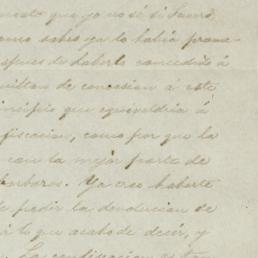 puesto que yo no sé si
como sabes ya lo había prome
espues de haberlo concedido á
de concesion á este
incipio que equivaldria á
fiscacion, como por que la
con la mejor parte de
Ya creo haberte
e pedir la devolucion de
á lo que acabo de decir, y
La